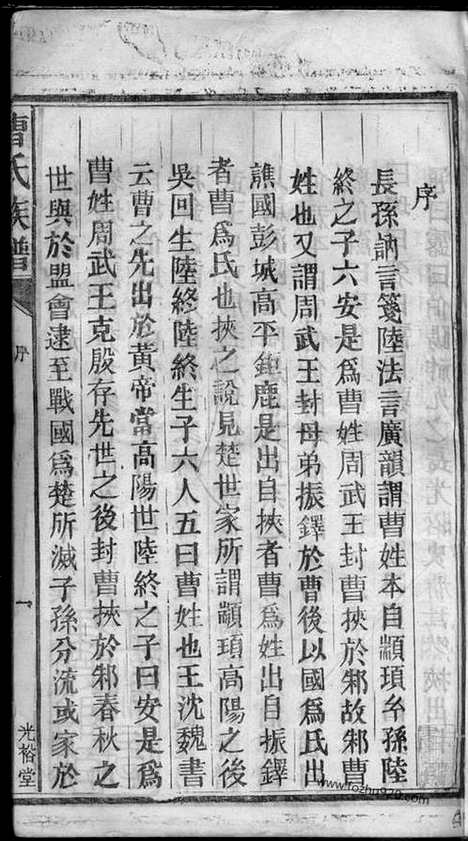 序
長孫訥言箋陸法言廣韻謂曹姓本自顓頊𢆯孫陸
終之子六安是爲曹姓周武王封曹挾於邾故邾曹
姓也又謂周武王封母弟振鐸於曹後以國爲氏出
譙國彭城高平鉅鹿是出自挾者曹爲姓出自振鐸
者曹爲氏也挾之說見楚世家所謂顓頊高陽之後
吳回生陸終陸終生子六人五曰曹姓也王沈魏書
云曹之先出於黃帝當高陽世陸終之子曰安是爲
曹姓周武王克殷存先世之後封曹挾於邾春秋之
世與於盟會逮至戰國爲楚所滅子孫分流或家於
曹氏族譜
序
一
光裕堂
www.fozhu920.com